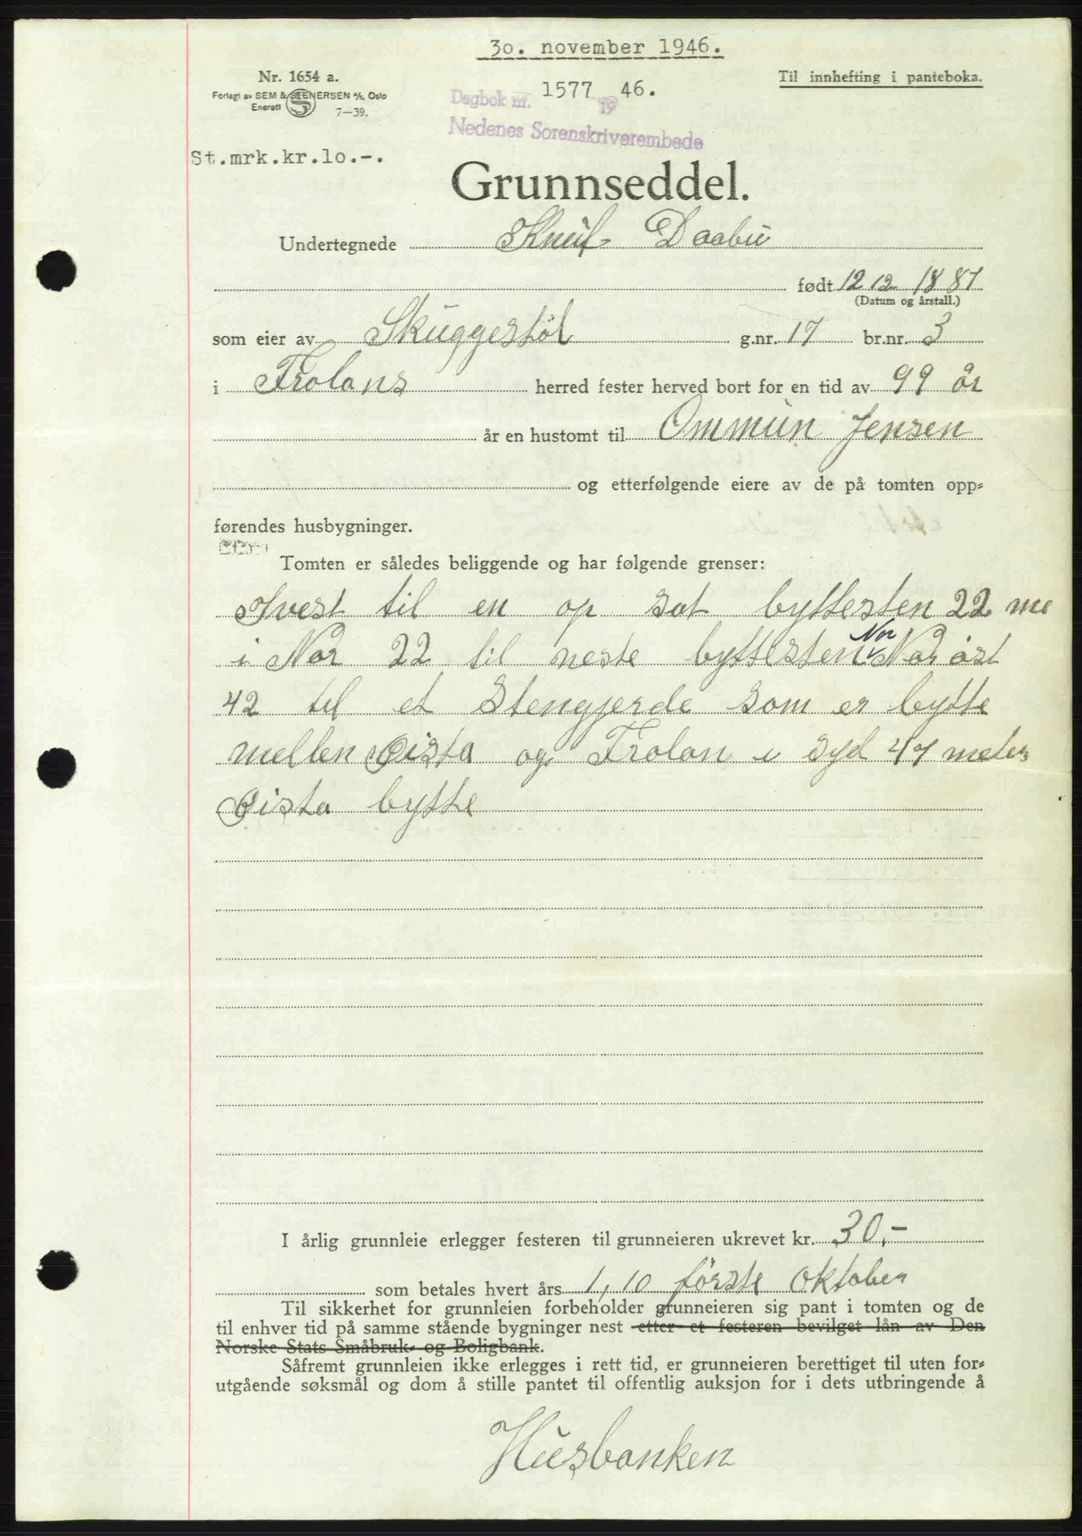 30. november 1946.
Nr. 1654 a.
Til innhefting i panteboka.
Forlagt av SEM & STENERSEN A/S, Oslo
Enerett
7—39.
Dagbok nr. 1577 1946.
Nedenes Sorenskriverembede
St.mrk.kr.10.-.
Grunnseddel.
Undertegnede Knut Daabu
født 12 12 1887
(Datum og årstall.)
som eier av Skuggestøl g.nr. 17 br.nr. 3
i Frolans herred fester herved bort for en tid av 99 år
år en hustomt til Ommun Jensen
og etterfølgende eiere av de på tomten opp-
førendes husbygninger.
Tomten er således beliggende og har følgende grenser:
Ivest til en op sat byttesten 22 me
i Nor 22 til neste byttesten Nor Nor øst
42 til et Stengjerde som er bytte
mellen Øista og Frolan i syd 47 meter
Øista bytte
I årlig grunnleie erlegger festeren til grunneieren ukrevet kr. 30,-
som betales hvert års 1,10 første Oktober
Til sikkerhet for grunnleien forbeholder grunneieren sig pant i tomten og de
til enhver tid på samme stående bygninger nest etter et festeren bevilget lån av Den
Norske Stats Småbruk- og Boligbank.
Såfremt grunnleien ikke erlegges i rett tid, er grunneieren berettiget til uten for-
utgående søksmål og dom å stille pantet til offentlig auksjon for i dets utbringende å
Husbanken